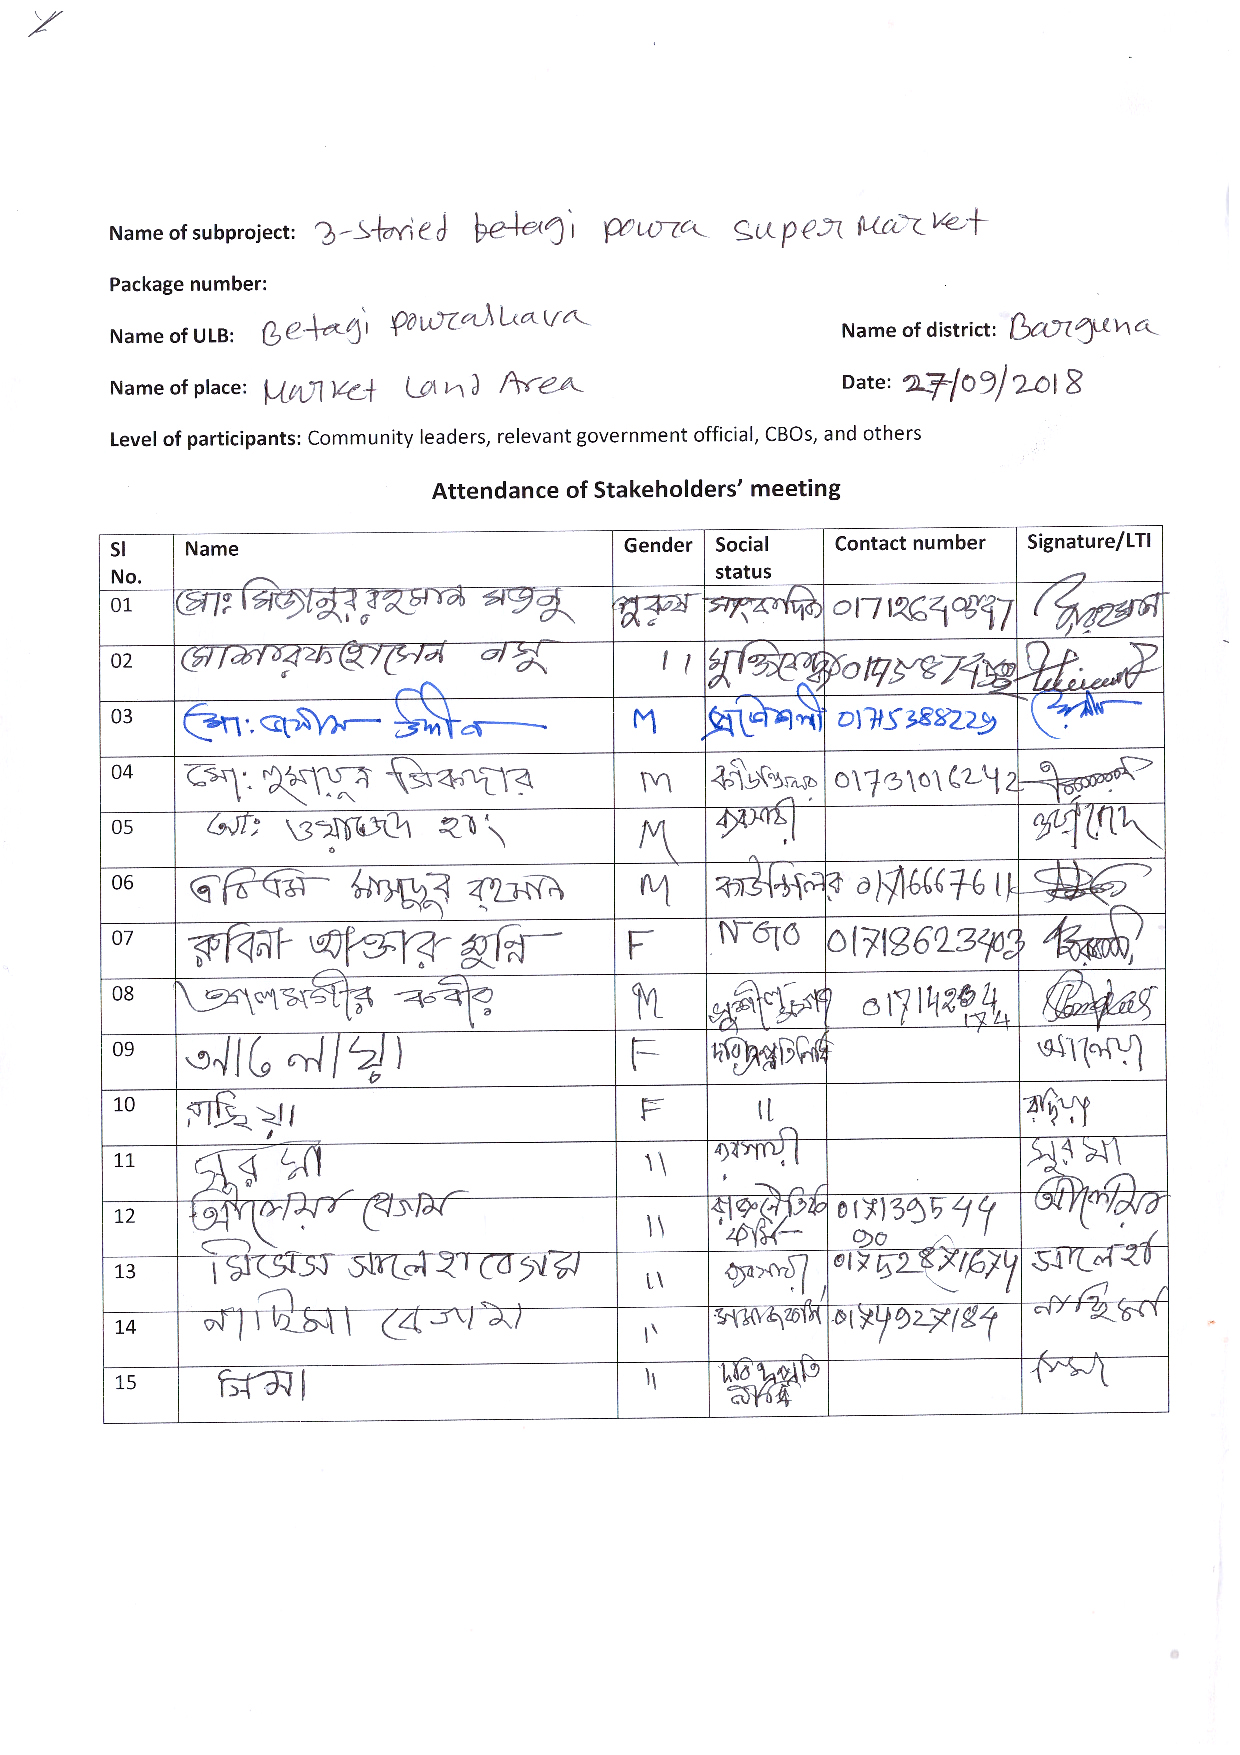 Name of subproject: 3-storied betagi powra super Market
Package number:
Name of ULB: Betagi Powrashava Name of district: Barguna
Name of place: Market Land Area Date: 27/09/2018
Level of participants: Community leaders, relevant government official, CBOs, and others
Attendance of Stakeholders' meeting
Sl No. Name Gender Social status Contact number Signature/LTI
01 মোঃ মিজানুর রহমান মজনু পুরুষ সাংবাদিক
02 মোশাররফ হোসেন "
03 মোঃ জসীম উদ্দীন M প্রকৌশলী 01715388229
04 মোঃ হুমায়ূন সিকদার M 01731016242
05 মোঃ M ব্যবসায়ী
06 এবিএম মাসুদুর রহমান M কাউন্সিলর 01716667611
07 রুবিনা আক্তার মুন্নি F NGO 01718623403
08 আলমগীর কবীর M
09 F
10 রাহিয়া F "
11 সুরমা " ব্যবসায়ী সুরমা
12 বেগম " 017139544 90
13 মিসেস সালেহা বেগম " ব্যবসায়ী 01752871674 সালেহা
14 নাছিমা বেগম " 0174927184 নাছিমা
15 সিমা " সিমা